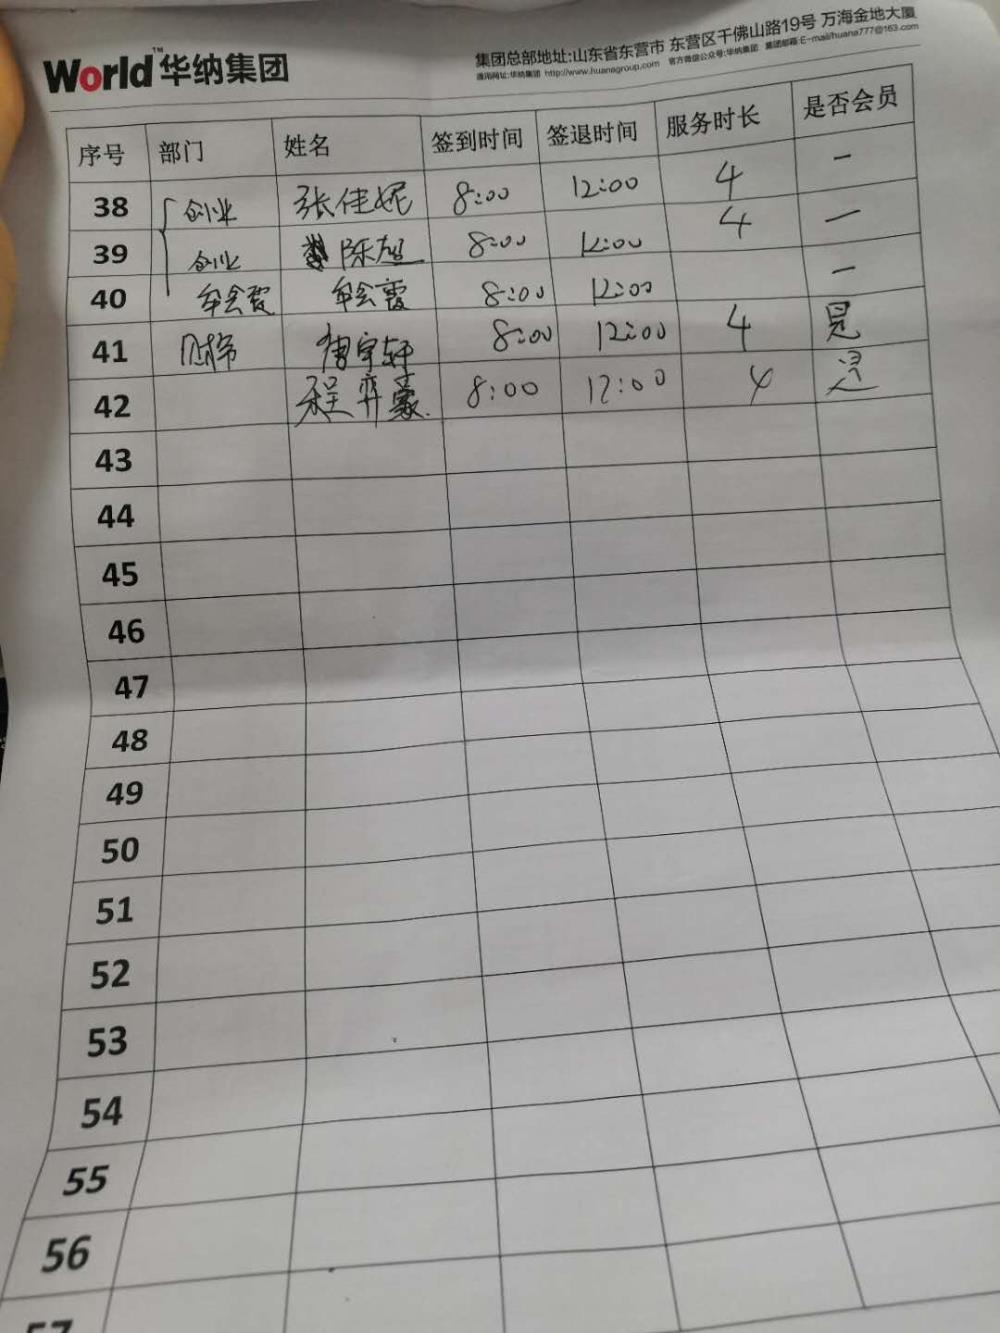 World™华纳集团
集团总部地址:山东省东营市 东营区千佛山路19号 万海金地大厦
通用网址:华纳集团 http://www.huanagroup.com 官方微信公众号:华纳集团 集团邮箱:E-mail/huana777@163.com
序号 部门 姓名 签到时间 签退时间 服务时长 是否会员
38 创业 张佳妮 8:00 12:00 4 一
39 创业 陈旭 8:00 12:00 4 一
40 8:00 12:00 一
41 宇轩 8:00 12:00 4 是
42 程弈豪 8:00 12:00 4 是
43
44
45
46
47
48
49
50
51
52
53
54
55
56
57